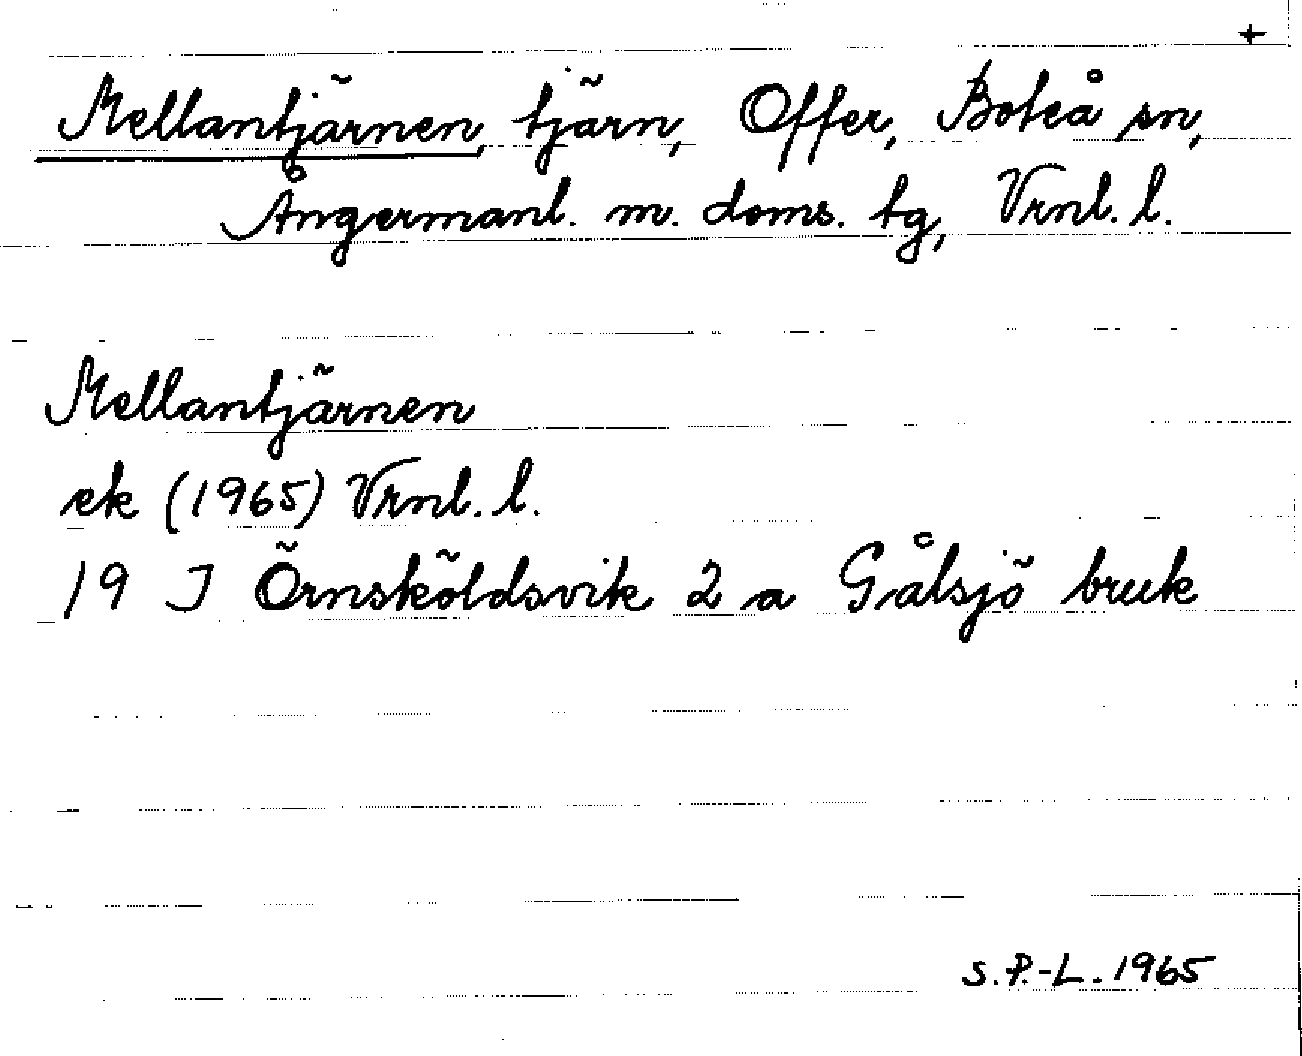 +
Mellantjärnen, tjärn, Offer, Boteå sn,
Ångermanl. m. doms. tg, Vrnl. l.
Mellantjärnen
ek (1965) Vrnl. l.
19 J Örnsköldsvik 2 a Gålsjö bruk
S.P.-L. 1965